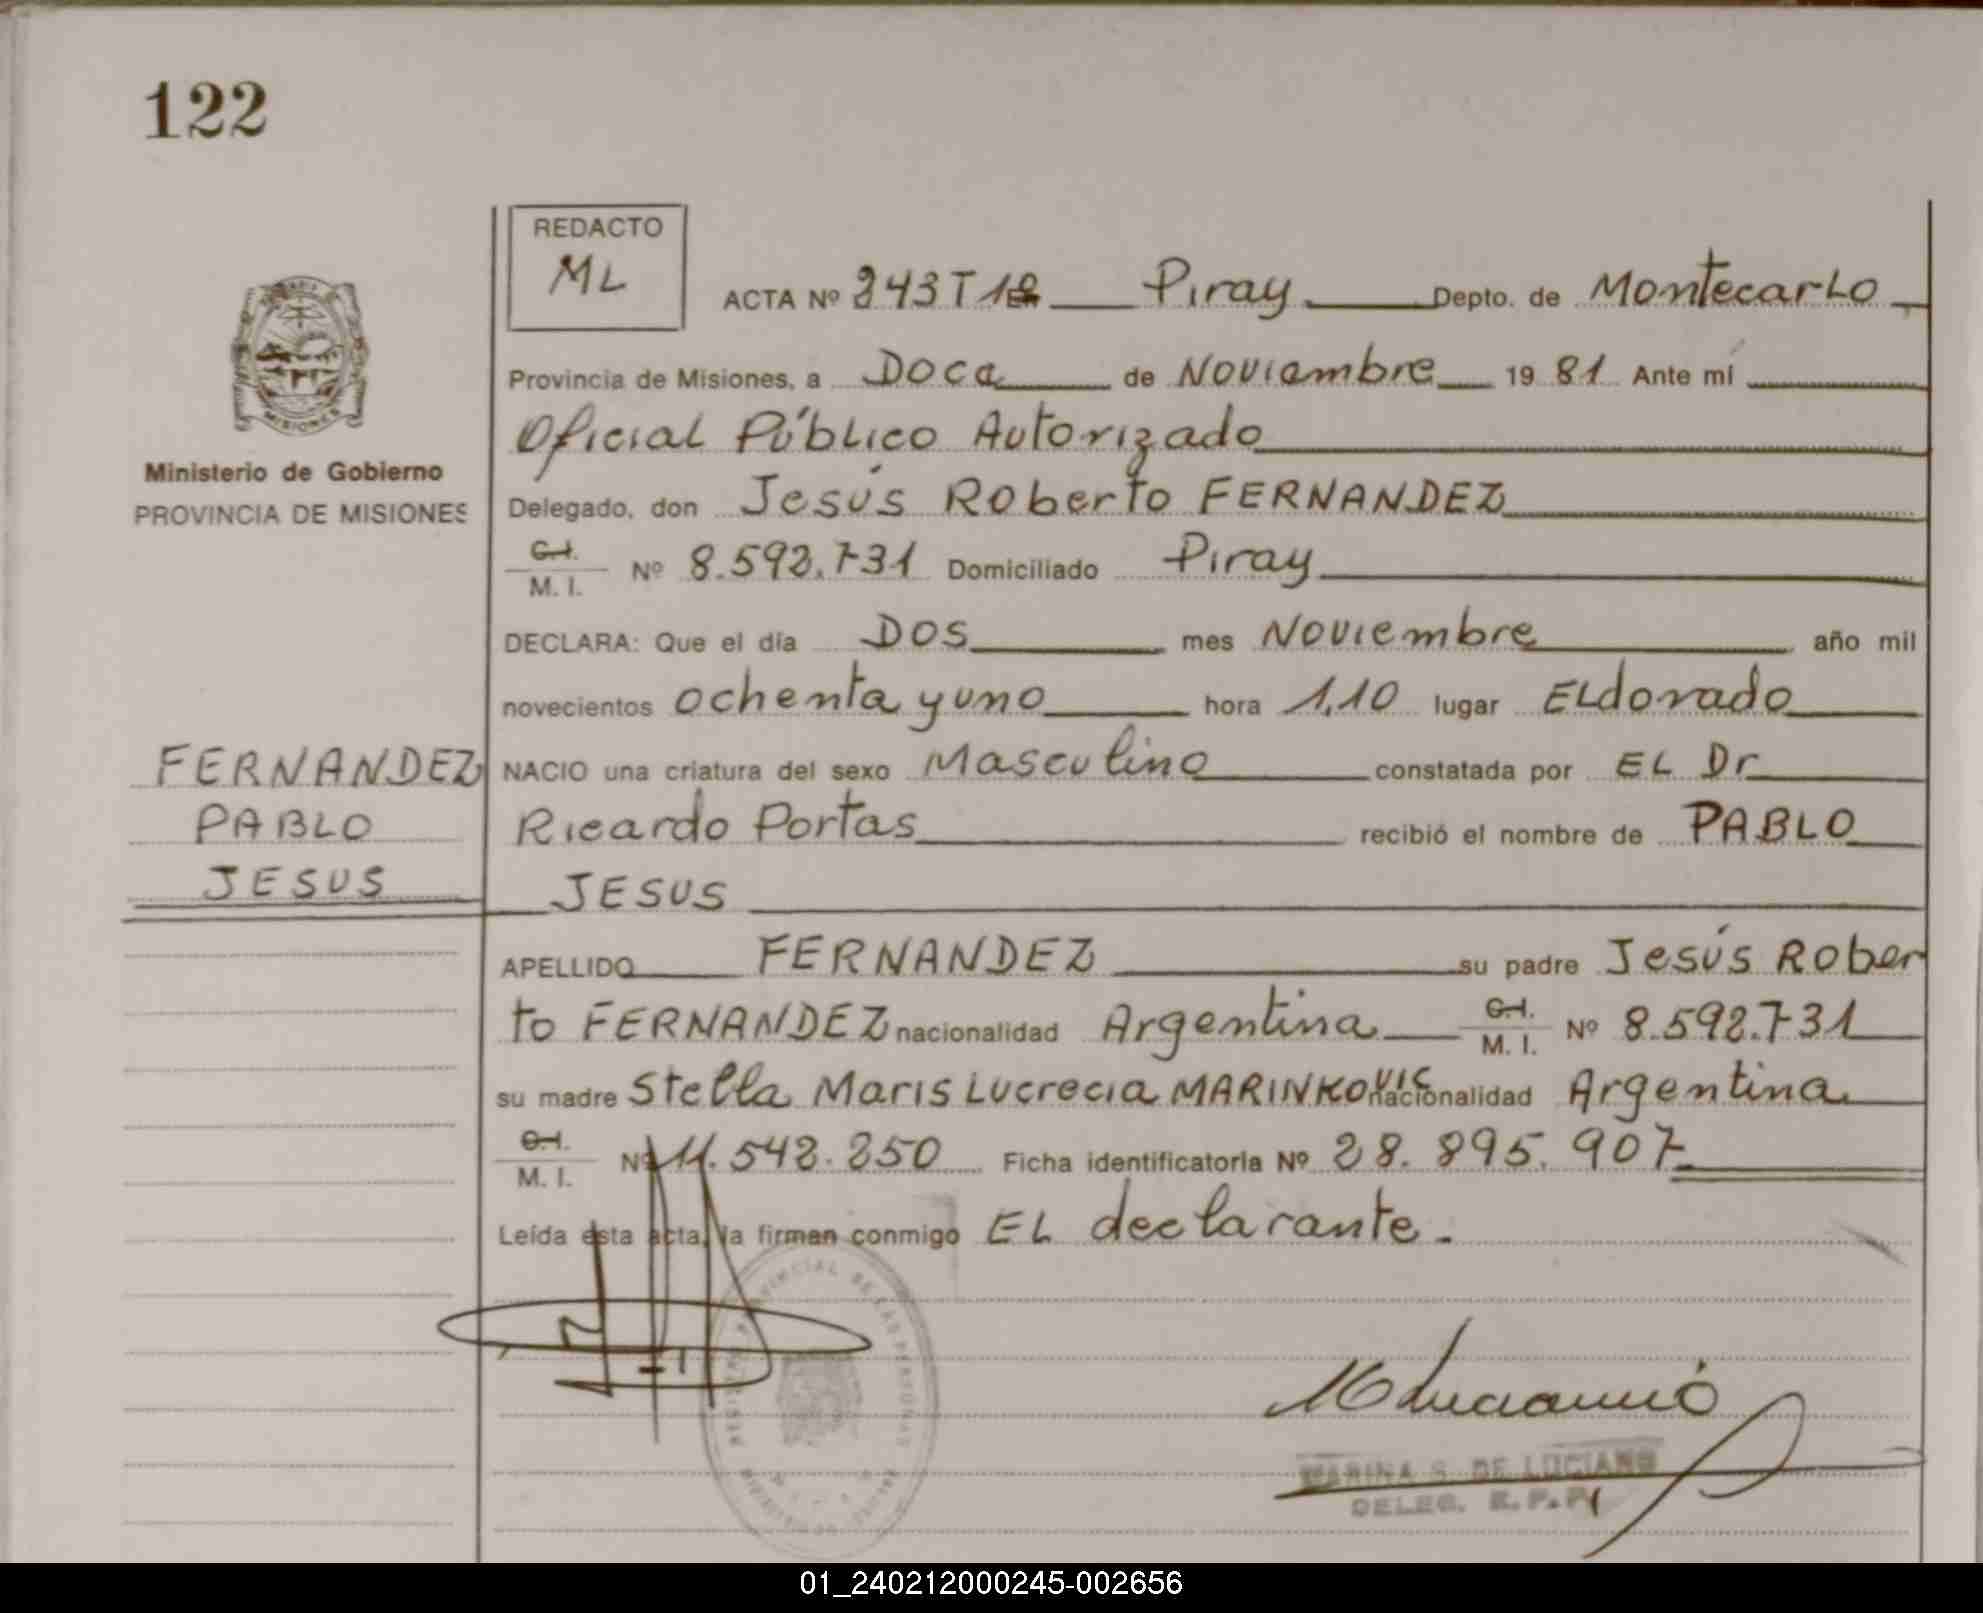 122
REDACTO
ML
ACTA Nº 243 T 1º Piray Depto. de Montecarlo
Provincia de Misiones, a Doce de Noviembre 1981 Ante mí
Oficial Público Autorizado
Ministerio de Gobierno
PROVINCIA DE MISIONES
MISIONES
Delegado, don Jesús Roberto FERNANDEZ
C.I.
M. I. Nº 8.592.731 Domiciliado Piray
DECLARA: Que el día DOS mes Noviembre año mil
novecientos ochenta y uno hora 1,10 lugar ELdorado
FERNANDEZ
PABLO
JESUS
NACIO una criatura del sexo Masculino constatada por EL Dr
Ricardo Portas recibió el nombre de PABLO
JESUS
APELLIDO FERNANDEZ su padre Jesús Rober
to FERNANDEZ nacionalidad Argentina C.I. M. I. Nº 8.592.731
su madre Stella Maris Lucrecia MARINKOVIC nacionalidad Argentina
C.I.
M. I. Nº 11.542.250 Ficha identificatoria Nº 28.895.907
Leída esta acta, la firman conmigo EL declarante.
MARINA S. DE LUCIANO
DELEG. R.P.P.
01_240212000245-002656